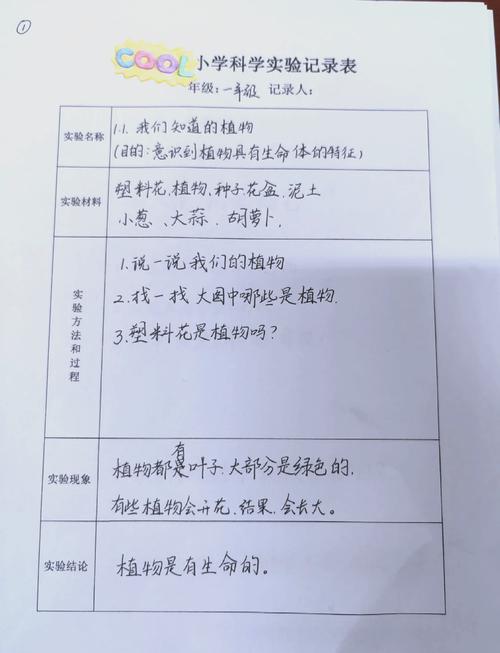 ①
COOL小学科学实验记录表
年级:一年级 记录人:
实验名称
1.1. 我们知道的植物
(目的:意识到植物具有生命体的特征)
实验材料
塑料花、植物、种子花盆、泥土
小葱、大蒜、胡萝卜.
实验方法和过程
1.说一说我们的植物
2.找一找大图中哪些是植物.
3.塑料花是植物吗?
实验现象
植物都有叶子.大部分是绿色的.
有些植物会开花、结果、会长大。
实验结论
植物是有生命的。